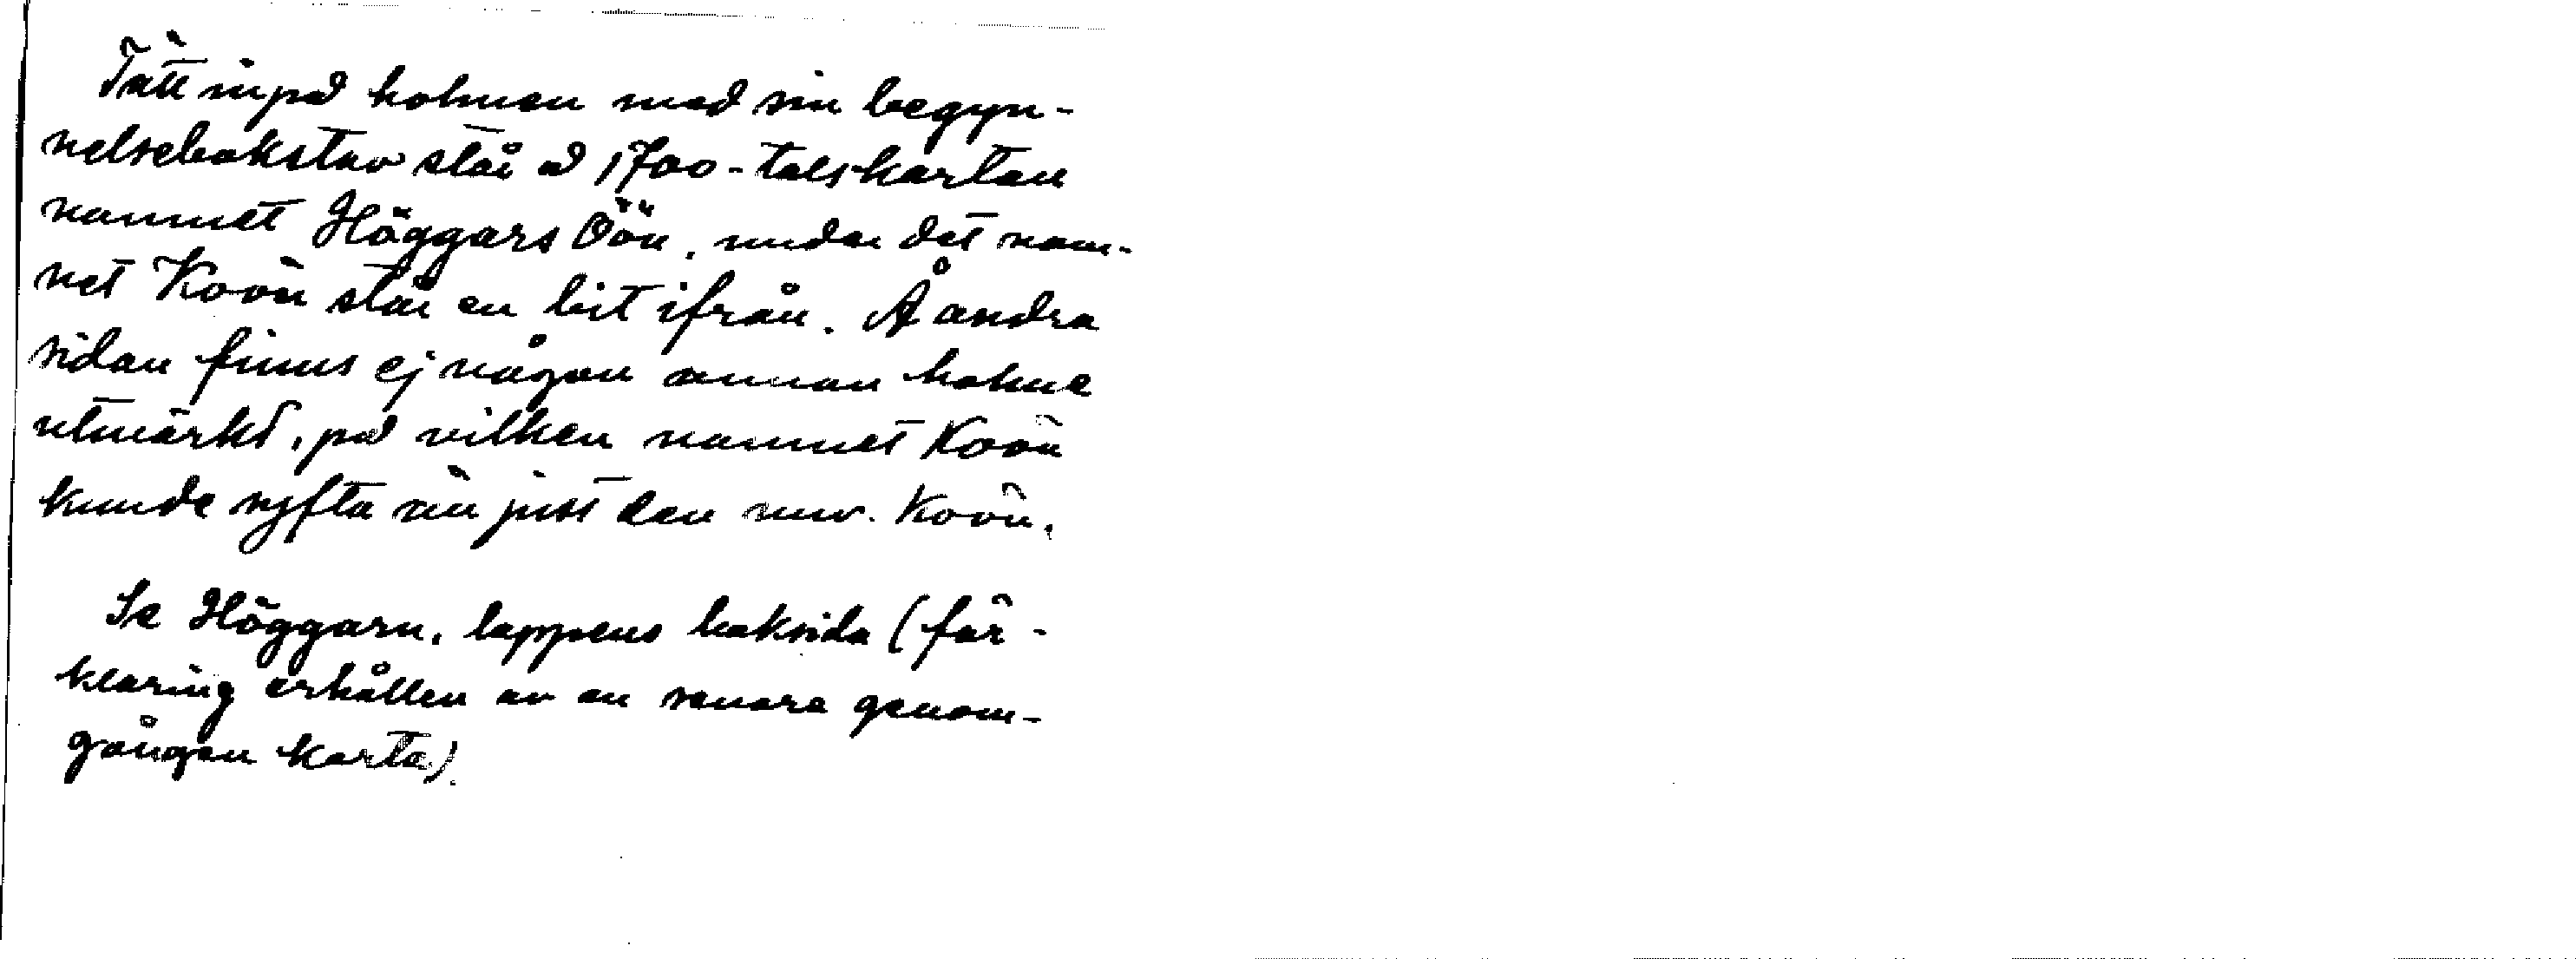 Tätt inpå holmen med sin begyn-
nelsebokstav står å 1700-talskartan
namnet Höggars Öön, medan det nam-
net Koön står en bit ifrån. Å andra
sidan finns ej någon annan holme
utmärkt, på vilken namnet Koön
kunde syfta än just den nuv. Koön.
Se Höggarn, lappens baksida (för-
klaring erhållen av en senare genom-
gången karta).